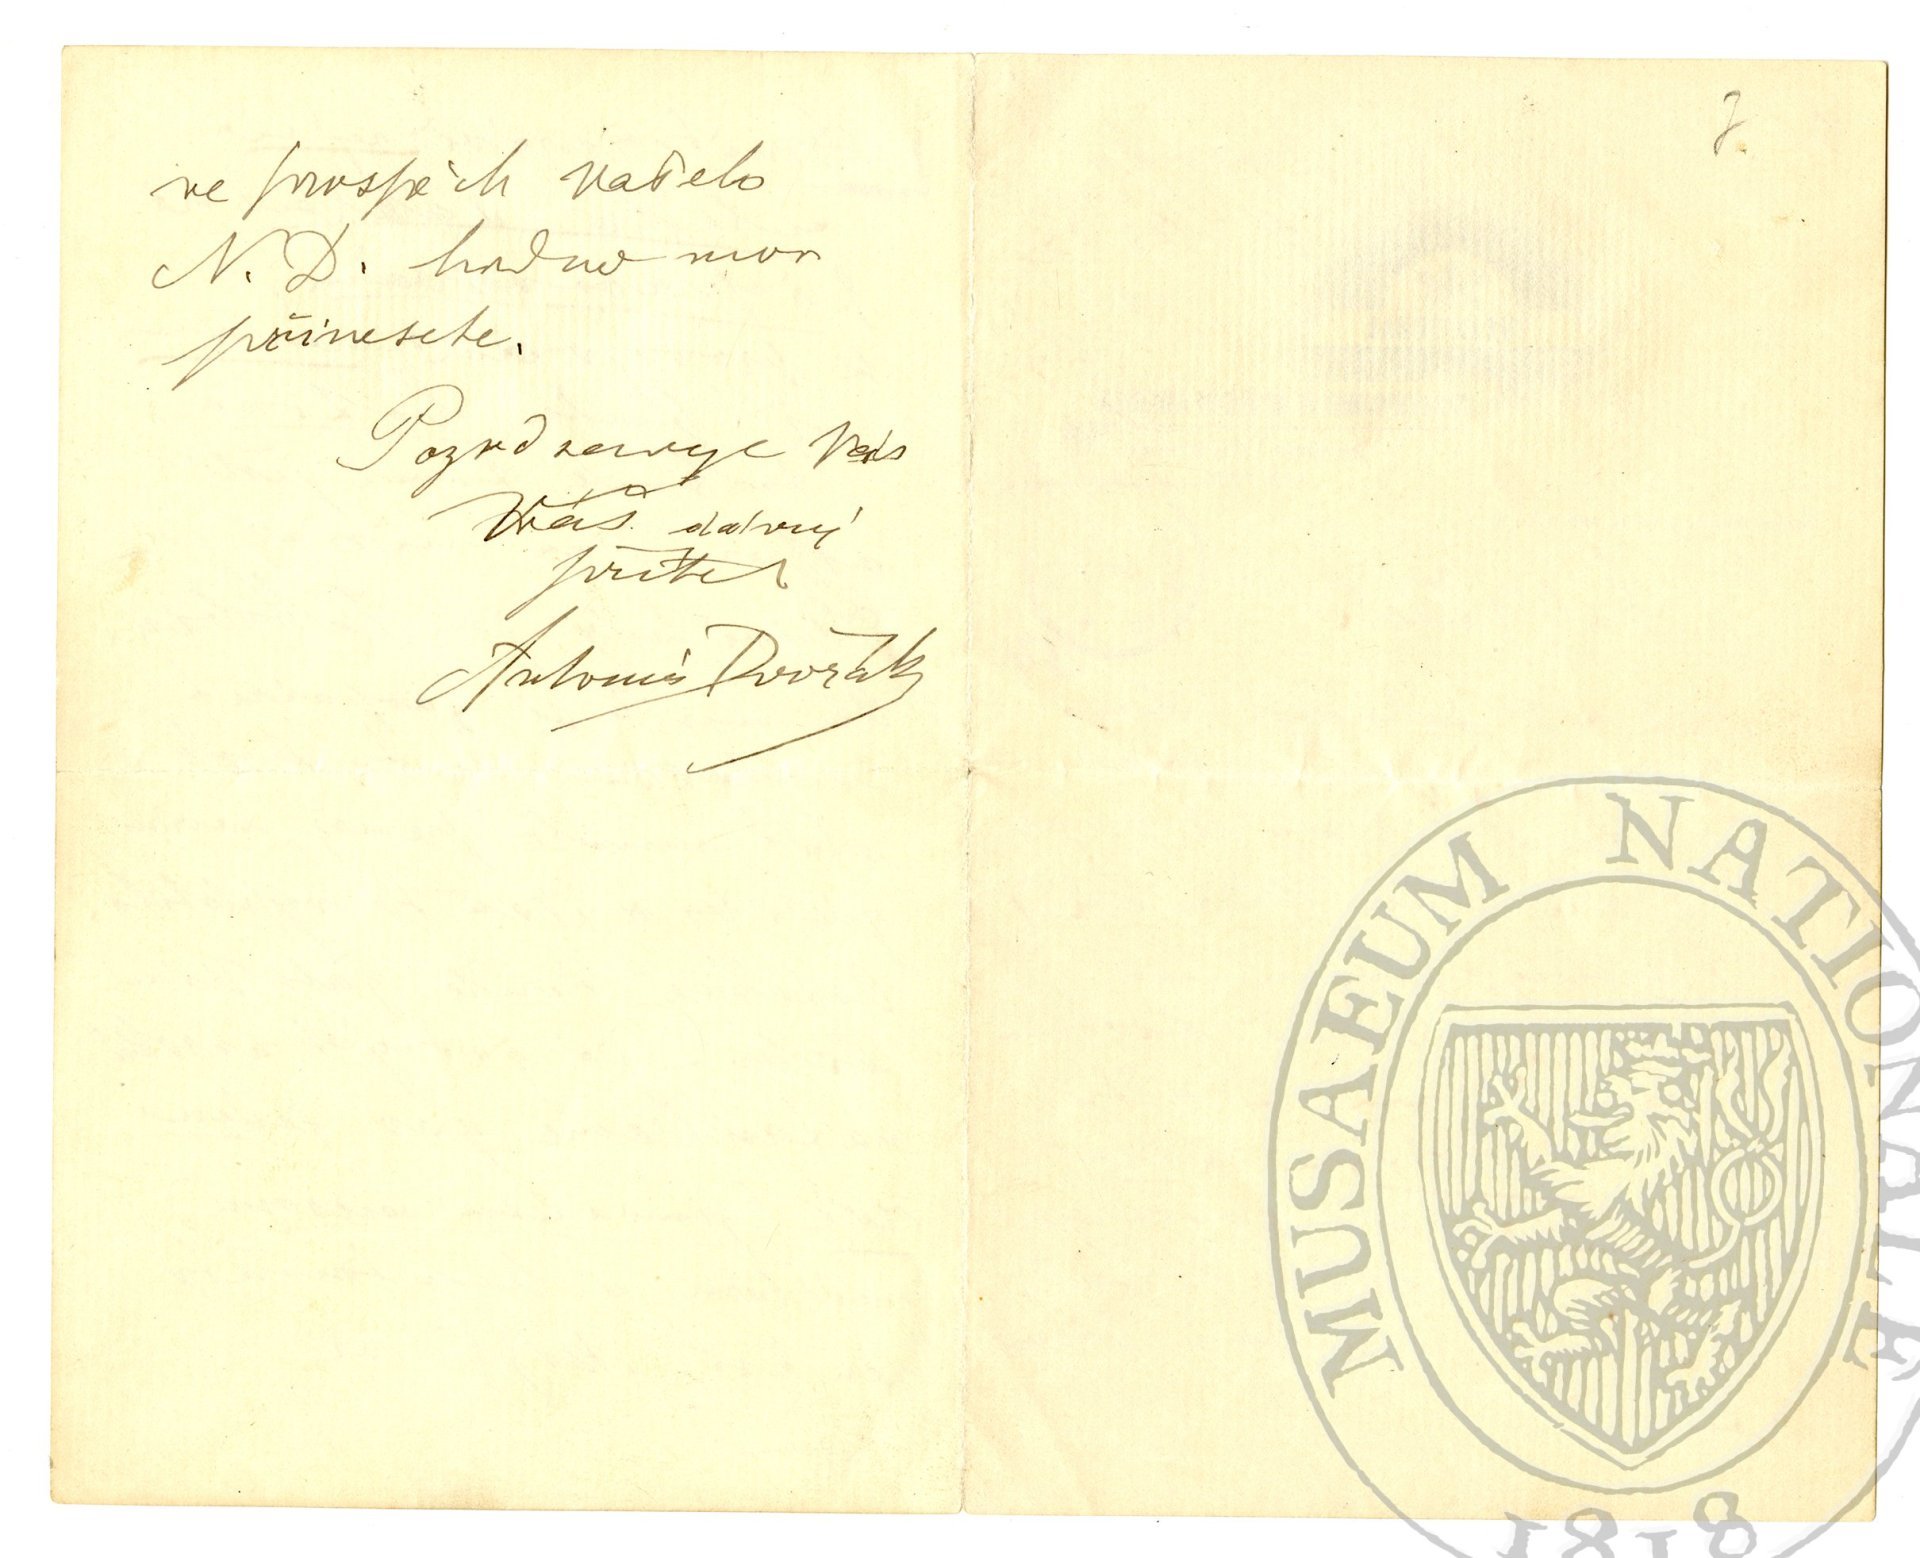 ve prospěch Vašeho
N. D. hodno mor
přinesete.
Pozdravuje Vás
Váš dávný
přítel
Antonín Dvořák
7.
MUSAEUM NATIONALE
1818